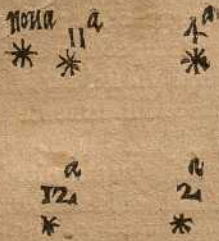 noua
11 a
1 a
12 a
2 a